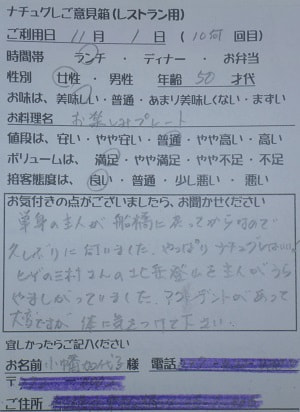 ナチュグレご意見箱(レストラン用)
ご利用日 11月 1日 (10何 回目)
時間帯 ランチ ・ ディナー ・ お弁当
性別 女性 ・ 男性 年齢 50 才代
お味は、美味しい・普通・あまり美味しくない・まずい
お料理名 お楽しみプレート
値段は、安い・やや安い・普通・やや高い・高い
ボリュームは、 満足・やや満足・やや不足・不足
接客態度は、 良い・ 普通 ・ 少し悪い ・ 悪い
お気付きの点がございましたら、お聞かせください
単身の主人が 船橋に 戻ってからなので
久しぶりに伺いました。やっぱり ナチュグレはいい!
ヒゲの三村さんの 北岳登山を主人がうら
やましがっていました。アクシデントがあって
大変ですが、体に気をつけて下さい。
宜しかったらご記入ください
お名前 小幡 様 電話
〒
ご住所